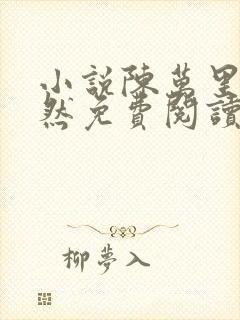 小説陳萬里
然免費閱讀
柳夢入